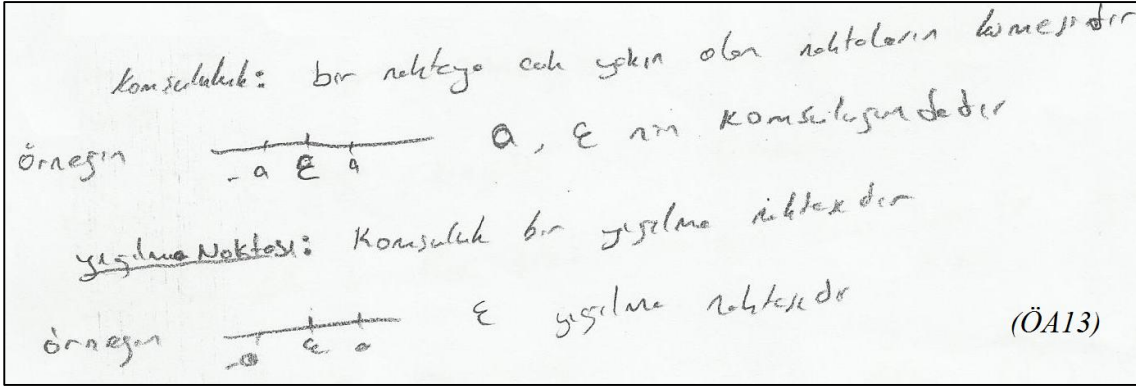 Komşuluk: bir noktaya çok yakın olan noktaların kümesidir
örneğin -a ε a a, ε nin komşuluğundadır
yığılma Noktası: Komşuluk bir yığılma noktasıdır
örneğin -a ε a ε yığılma noktasıdır
(ÖA13)